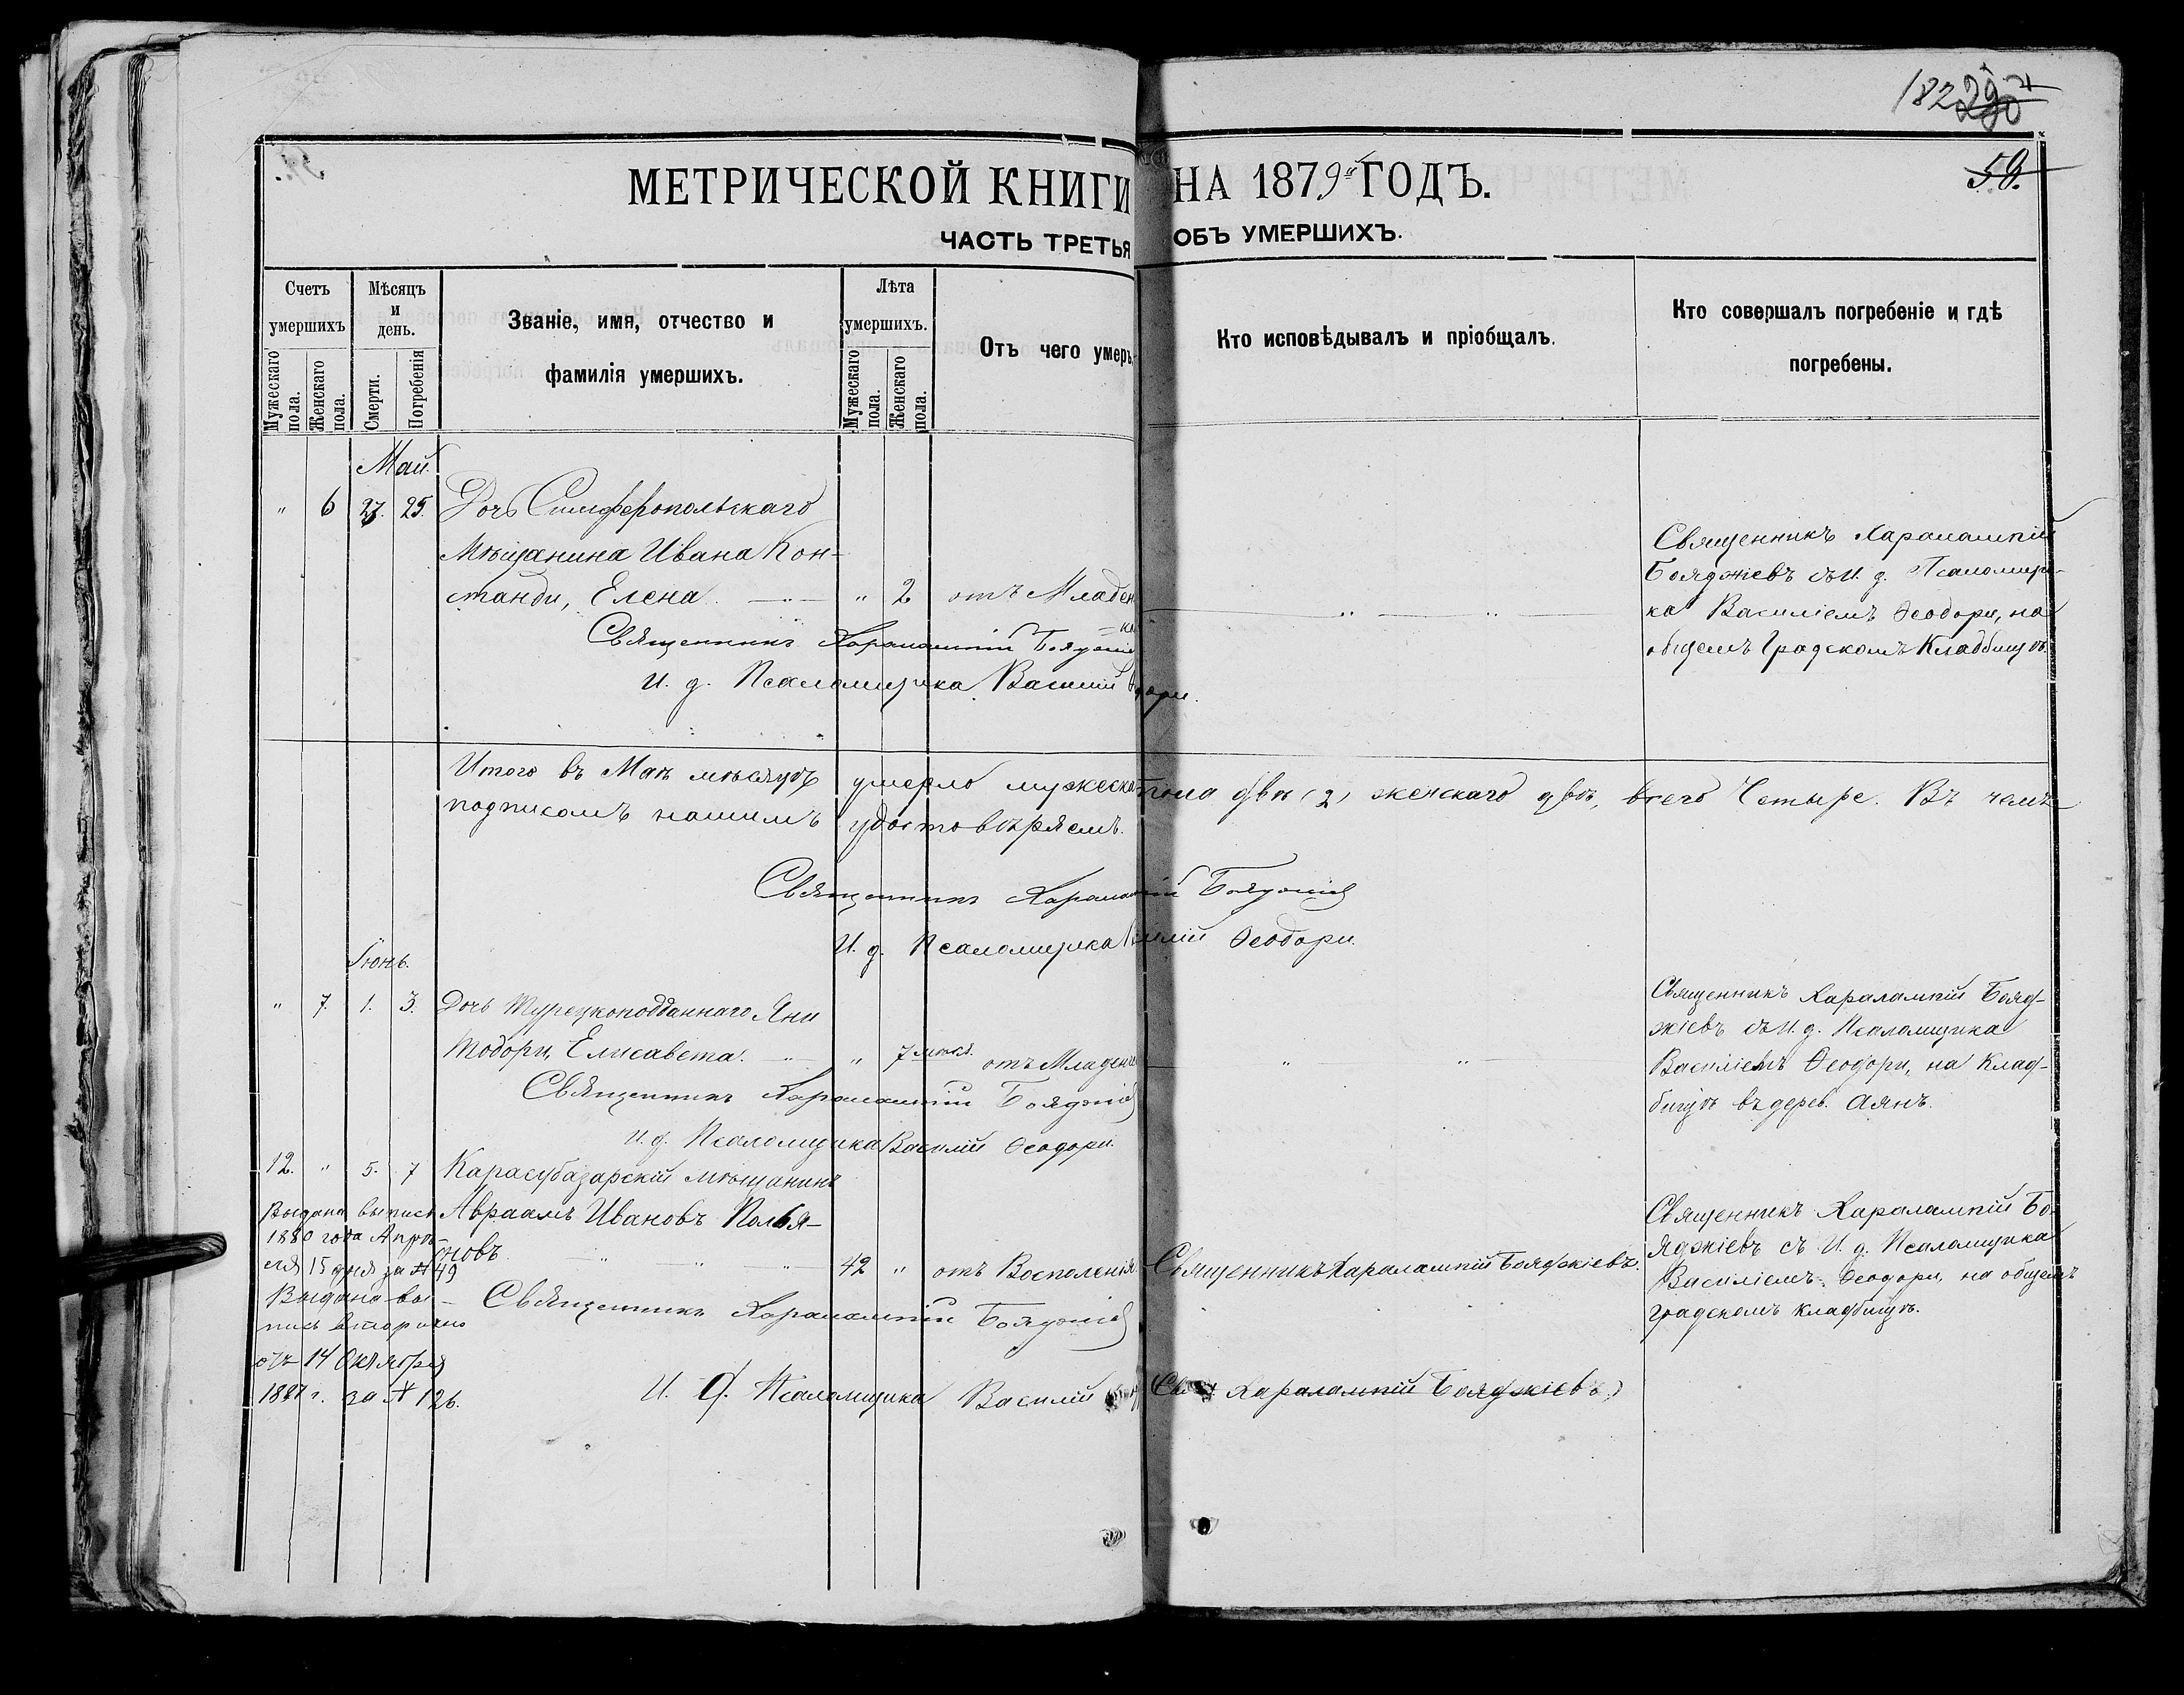 182
290
59.
МЕТРИЧЕСКОЙ КНИГИ НА 1879й ГОДЪ.
ЧАСТЬ ТРЕТЬЯ ОБЪ УМЕРШИХЪ.
Счетъ умершихъ
Мужескаго пола.
Женскаго пола.
Мѣсяцъ и день.
Смерти.
Погребенія
Званіе, имя, отчество и
фамилія умершихъ.
Лѣта умершихъ.
Мужескаго пола.
Женскаго пола.
Отъ чего умеръ
Кто исповѣдывалъ и пріобщалъ.
Кто совершалъ погребеніе и гдѣ
погребены.
Май.
" 6 27. 29. Дочь Симферопольскаго
Мѣщанина Ивана Кон-
станди, Елена " 2 отъ Младен
Священникъ Харалампій
Бояджіевъ съ И. д. Псаломщи-
ка Василіемъ Ѳеодори, на
общемъ Градскомъ Кладбищѣ.
Священникъ Харалампій Бояджіевъ
И. д. Псаломщика Василій Ѳеодори.
Итого въ Маѣ мѣсяцѣ умерло мужеска пола два (2) женскаго двѣ, всего Четыре. Въ чемъ
подписомъ нашимъ удостовѣряемъ.
Священникъ Харалампій Бояджіевъ
И. д. Псаломщика Василій Ѳеодори.
Іюнь.
" 7. 1. 3. Дочь Турецкоподданнаго Яни
Тодори, Елисавета. " 7 мѣся. отъ Младен
Священникъ Харалампій Бояд-
жіевъ съ И. д. Псаломщика
Василіемъ Ѳеодори, на Клад-
бищѣ въ дерев. Аянъ.
Священникъ Харалампій Бояджіевъ
И. д. Псаломщика Василій Ѳеодори.
12. " 5. 7 Карасубазарскій мѣщанинъ
Авраамъ Ивановъ
новъ 42 " отъ Восполенія Священникъ Харалампій Бояджіевъ.
Священникъ Харалампій Бо-
яджіевъ съ И. д. Псаломщика
Василіемъ Ѳеодори, на общемъ
градскомъ кладбищѣ.
Выдана выпись
1880 года Апрѣ-
ля 15 дня за № 49
Выдана вы-
пись вторично
отъ 14 Октября
г. за № 126.
Священникъ Харалампій Бояджіевъ
И. д. Псаломщика Василій
Харалампій Бояджіевъ)